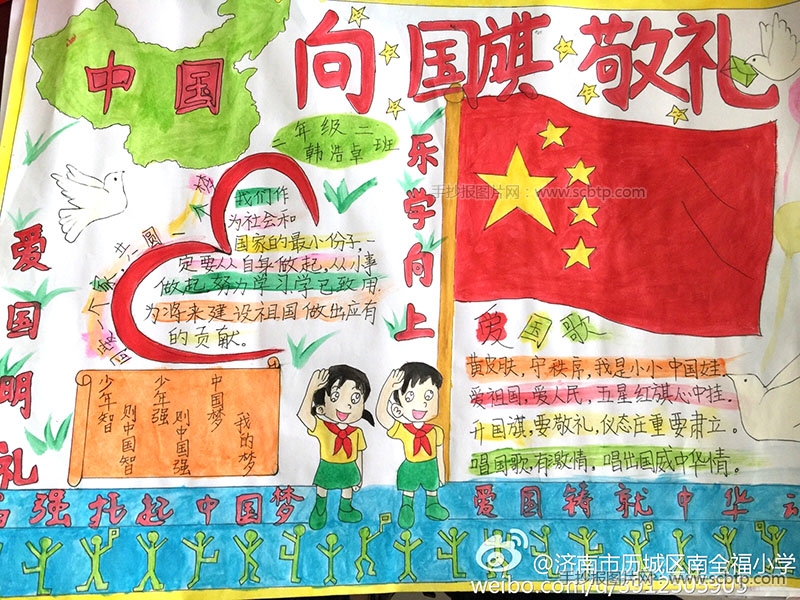 中国
向国旗敬礼
二年级二班
韩浩卓
乐学向上
爱国明礼
个家,共圆
梦
我们作
为社会和
国家的最小份子,一
定要从自身做起,从小事
做起,努力学习,学已致用,
为将来建设祖国做出应有
的贡献。
中国梦
我的梦
少年强
则中国强
少年智
则中国智
爱国歌
黄皮肤,守秩序,我是小小中国娃。
爱祖国,爱人民,五星红旗心中挂。
升国旗,要敬礼,仪态庄重要肃立。
唱国歌,有激情,唱出国威中华情。
强托起中国梦
爱国铸就中华
手抄报图片网:www.scbtp.com
@济南市历城区南全福小学
手抄报图片网:www.scbtp.com